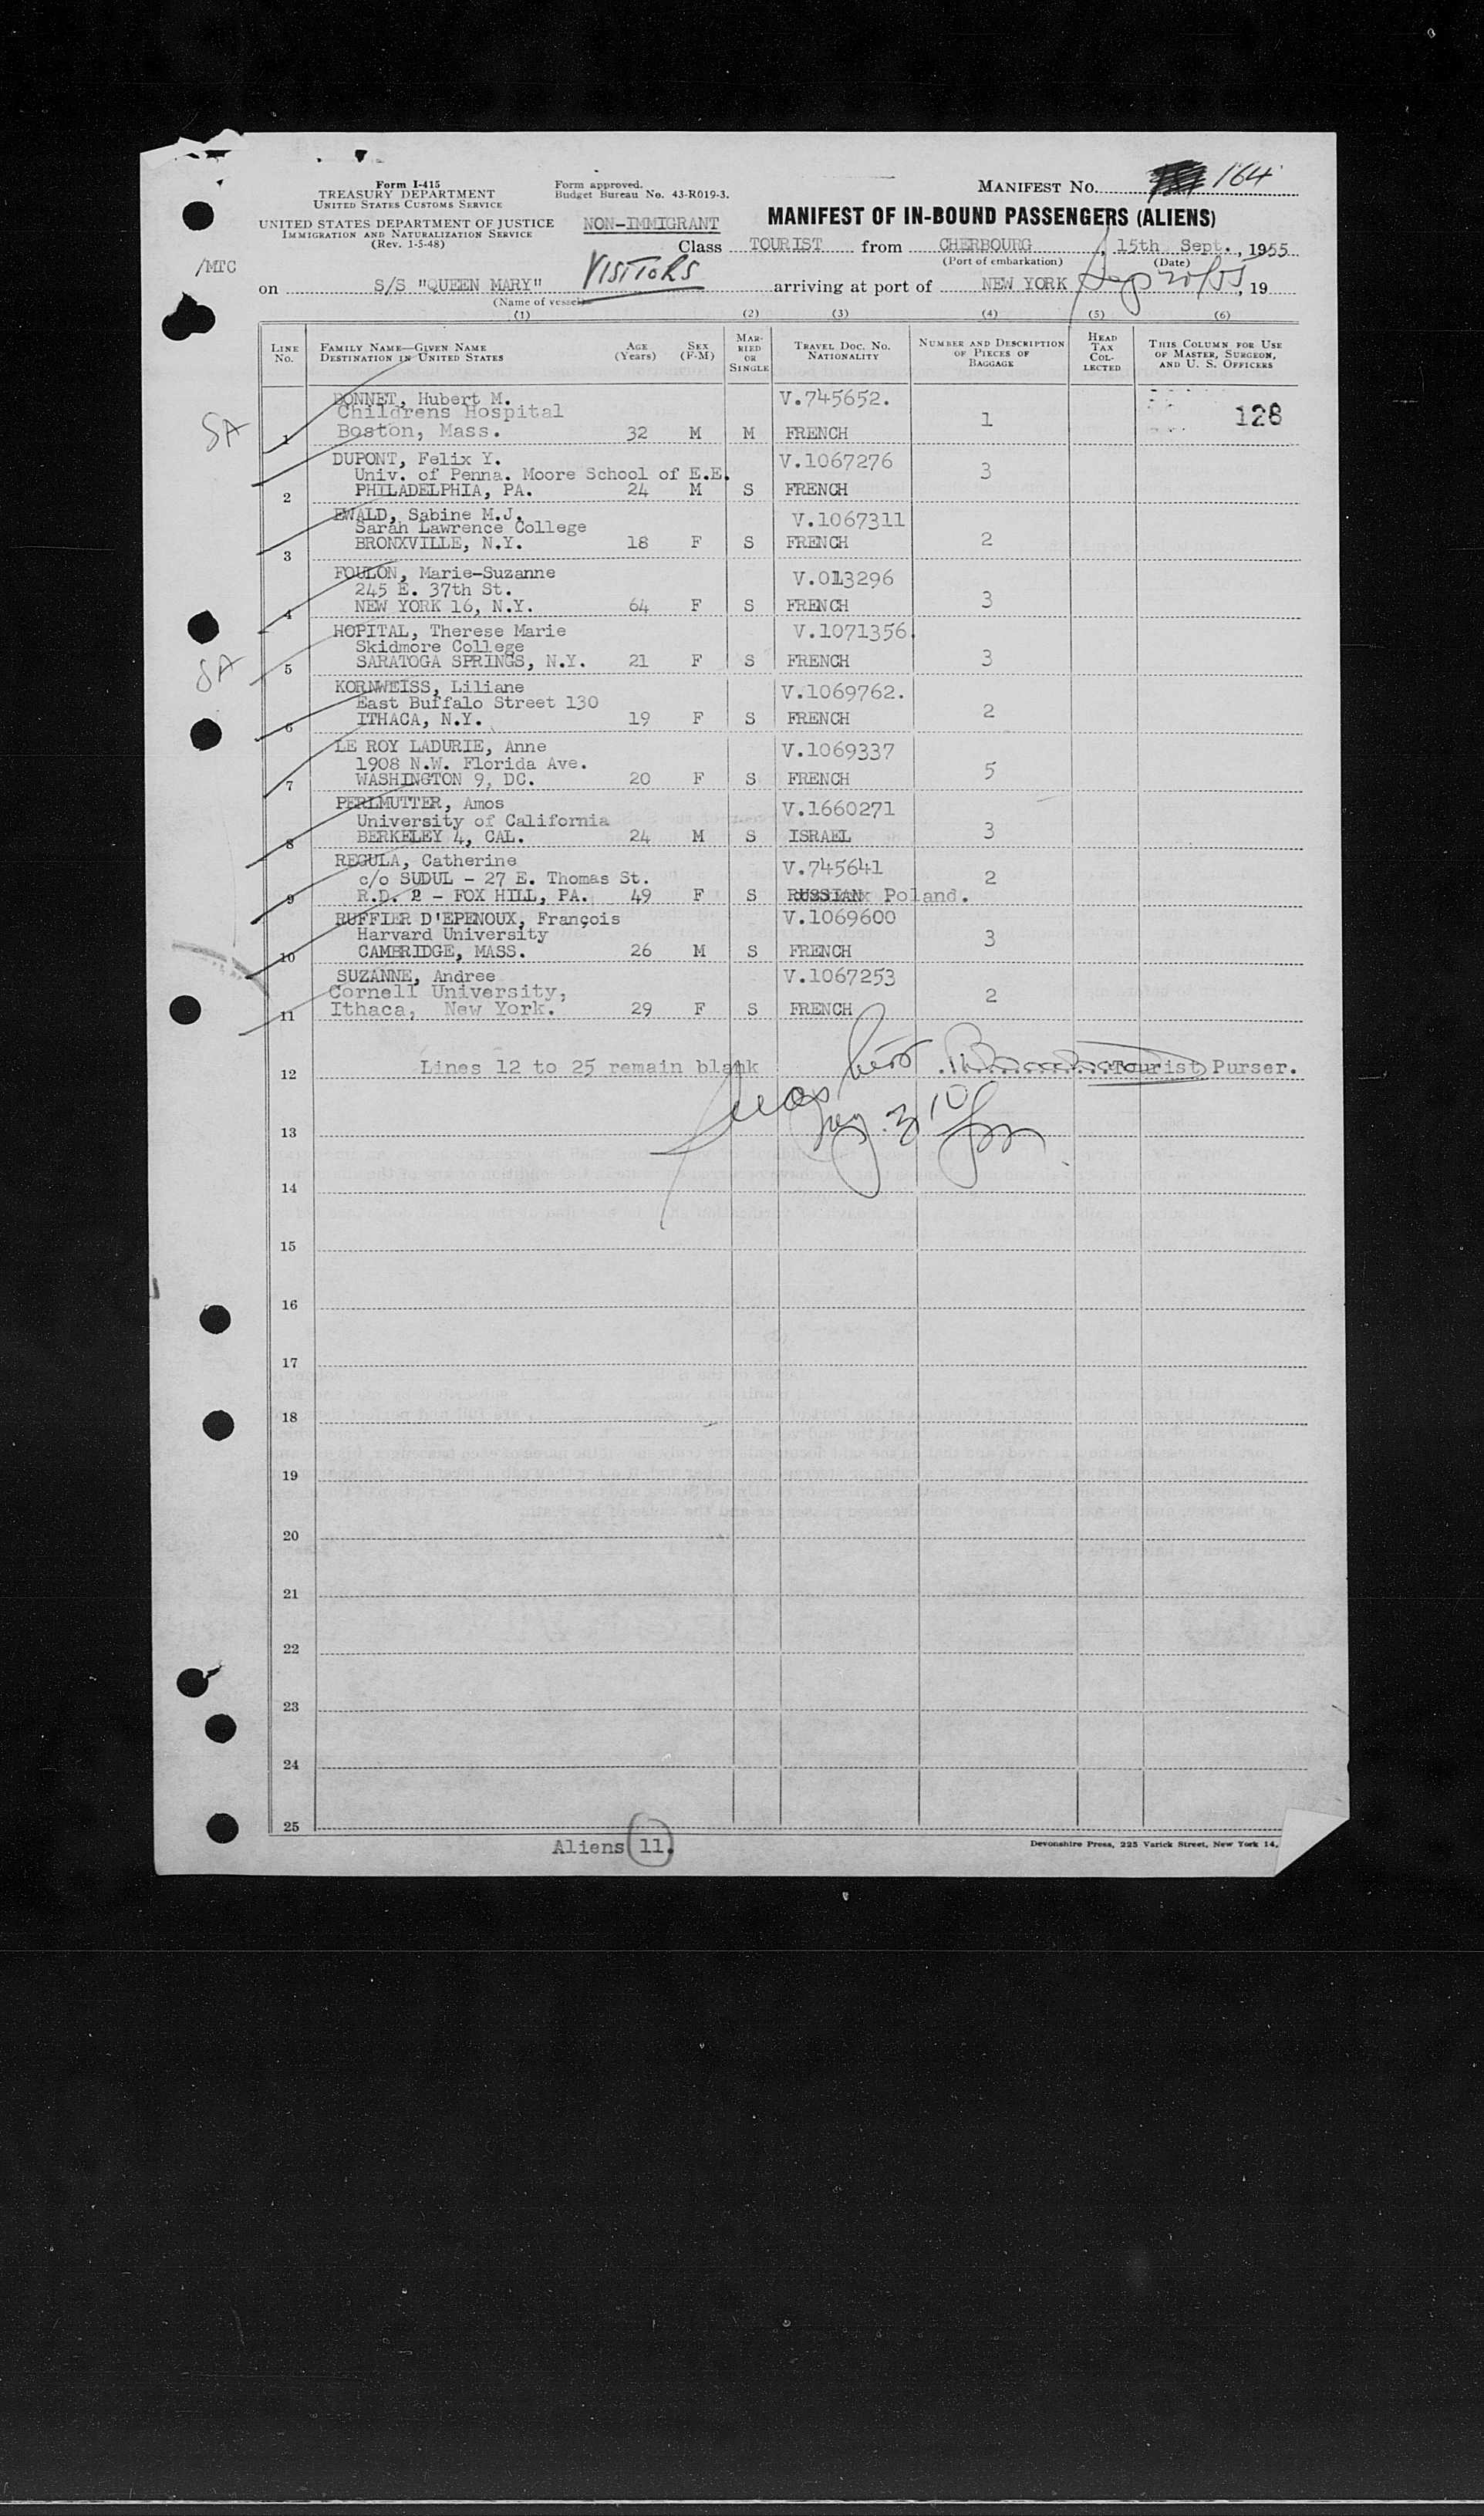 Form I-415
TREASURY DEPARTMENT
UNITED STATES CUSTOMS SERVICE
UNITED STATES DEPARTMENT OF JUSTICE
IMMIGRATION AND NATURALIZATION SERVICE
(Rev. 1-5-48)
Form approved.
Budget Bureau No. 43-R019-3.
MANIFEST NO. 164
NON-IMMIGRANT
MANIFEST OF IN-BOUND PASSENGERS (ALIENS)
Class TOURIST from CHERBOURG, 15th Sept., 1955
(Port of embarkation) (Date)
/MTC
on S/S "QUEEN MARY" VISITORS arriving at port of NEW YORK Sep 20/55, 19
(Name of vessel)
(1) (2) (3) (4) (5) (6)
LINE NO. FAMILY NAME—GIVEN NAME DESTINATION IN UNITED STATES AGE (Years) SEX (F-M) MARRIED OR SINGLE TRAVEL DOC. NO. NATIONALITY NUMBER AND DESCRIPTION OF PIECES OF BAGGAGE HEAD TAX COLLECTED THIS COLUMN FOR USE OF MASTER, SURGEON, AND U. S. OFFICERS
BONNET, Hubert M. V.745652.
SA Childrens Hospital 1 128
1 Boston, Mass. 32 M M FRENCH
DUPONT, Felix Y. V.1067276
Univ. of Penna. Moore School of E.E. 3
2 PHILADELPHIA, PA. 24 M S FRENCH
EWALD, Sabine M.J. V.1067311
Sarah Lawrence College
3 BRONXVILLE, N.Y. 18 F S FRENCH 2
FOULON, Marie-Suzanne V.013296
245 E. 37th St.
4 NEW YORK 16, N.Y. 64 F S FRENCH 3
HOPITAL, Therese Marie V.1071356.
Skidmore College
SA 5 SARATOGA SPRINGS, N.Y. 21 F S FRENCH 3
KORNWEISS, Liliane V.1069762.
East Buffalo Street 130 2
6 ITHACA, N.Y. 19 F S FRENCH
LE ROY LADURIE, Anne V.1069337
1908 N.W. Florida Ave. 5
7 WASHINGTON 9, DC. 20 F S FRENCH
PERLMUTTER, Amos V.1660271
University of California
8 BERKELEY 4, CAL. 24 M S ISRAEL 3
REGULA, Catherine V.745641
c/o SUDUL - 27 E. Thomas St. 2
9 R.D. 2 - FOX HILL, PA. 49 F S RUSSIAN Poland.
RUFFIER D'EPENOUX, François V.1069600
Harvard University 3
10 CAMBRIDGE, MASS. 26 M S FRENCH
SUZANNE, Andree V.1067253
Cornell University, 2
11 Ithaca, New York. 29 F S FRENCH
12 Lines 12 to 25 remain blank Tourist Purser.
13
14
15
16
17
18
19
20
21
22
23
24
25
Aliens 11.
Devonshire Press, 225 Varick Street, New York 14,